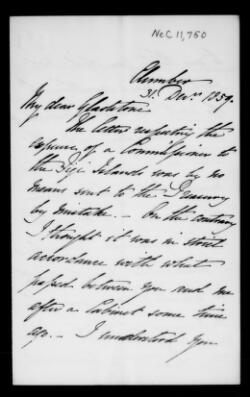 NeC 11,750
Clumber
31. Decr. 1859.
My dear Gladstone
The letter respecting the
expense of a Commissioner to
the Fiji Islands was by no
means sent to the Treasury
by mistake. – On the contrary
I thought it was in strict
accordance with what
passed between you and me
after a Cabinet some time
ago. – I understood you